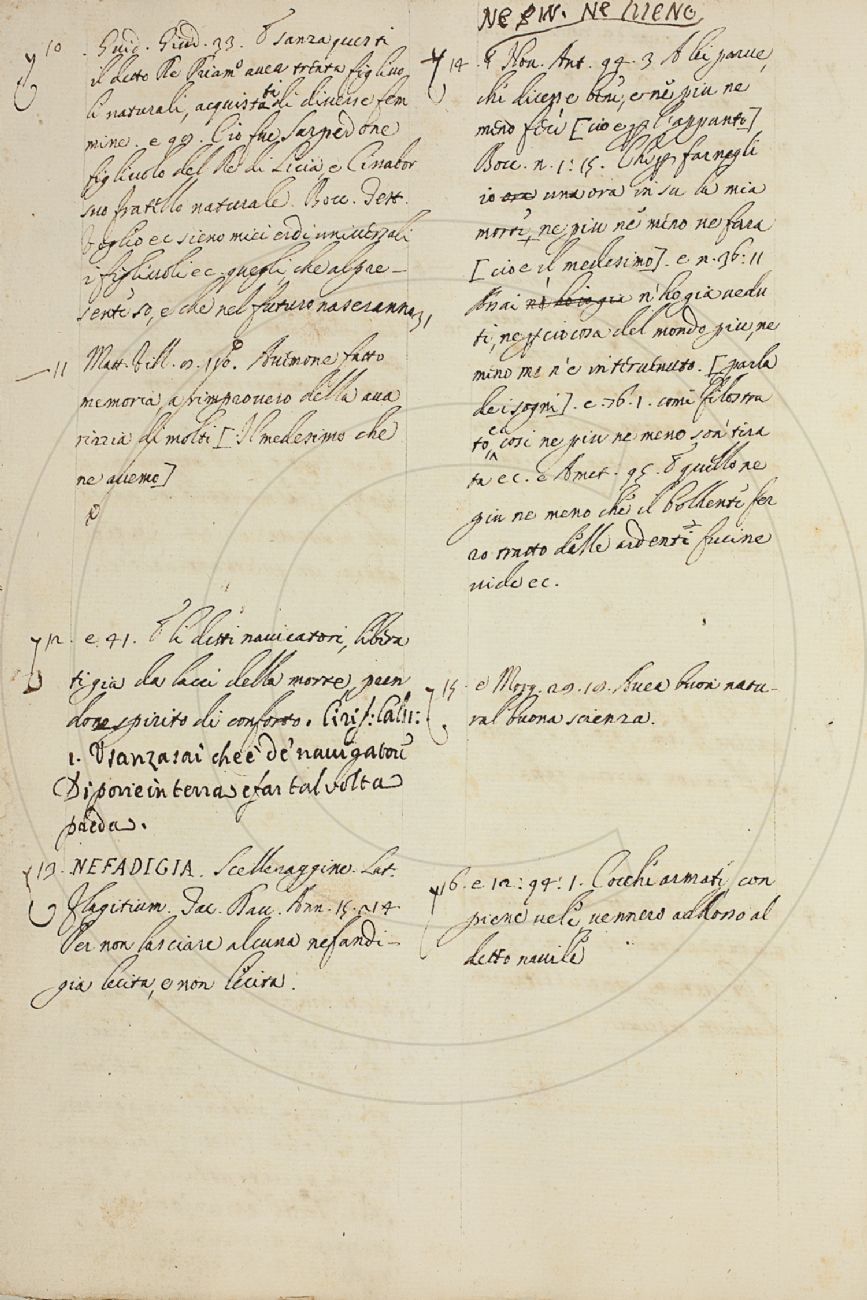 10 . Guid. Giud. 33. E sanza questi
il detto Re Priamo avea trenta figliuo
li naturali, acquistati di diverse fem
mine. e 99. Ciò fue Sarpedone
figliuolo del Re di Licia, e Cinabor
suo fratello naturale. Bocc. Test.
Voglio ec sieno miei eredi universali
i figliuoli ec. quegli, che al pre-
sente so, e che nel futuro naseranno
11 Matt. Vill. 9. Avemone fatto
memoria a rimprovero della ava
rizia di molti [Il medesimo che
ne avemo]
12. e 41. E li detti navicatori, libera
ti già da lacci della morte, pren
dono spirito di conforto. Cirif: Calv:
1. Usanza sai che è de' navigatori
Di porre in terra e far talvolta
preda.
13. NEFADIGIA. Scelleraggine. Lat.
Flagitium. Tac. Dav. Ann. 15. 214
Per non lasciare alcuna nefandi-
gia lecita, e non lecita.
NE PIU. NE MENO
14. Nov. Ant. 94. 3 A lei parve,
che dicesse bene, e nè piu ne
meno fece [cioè per l'appunto]
Bocc. n. 1: 15. Che per farnegli
io una ora in su la mia
morte, ne più nè meno ne fara
[cioè il medesimo]. e n. 36: 11
Assai n'ho già vedu
ti, ne per cio cosa del mondo più, ne
meno me n'è intervenuto. [parla
de i sogni]. e 76. 1. come Filostra
to, così ne piu ne meno son tira
ta ec. e Amet. 95. E quello ne
piu ne meno che il bollente fer
ro tratto dalle ardenti fucine
vide ec.
15. e Morg. 29. 19. Avea buon natu-
ral buona scienza.
16. e 12: 94: 1. Cocche armate, con
piene vele vennero addosso al
detto navile